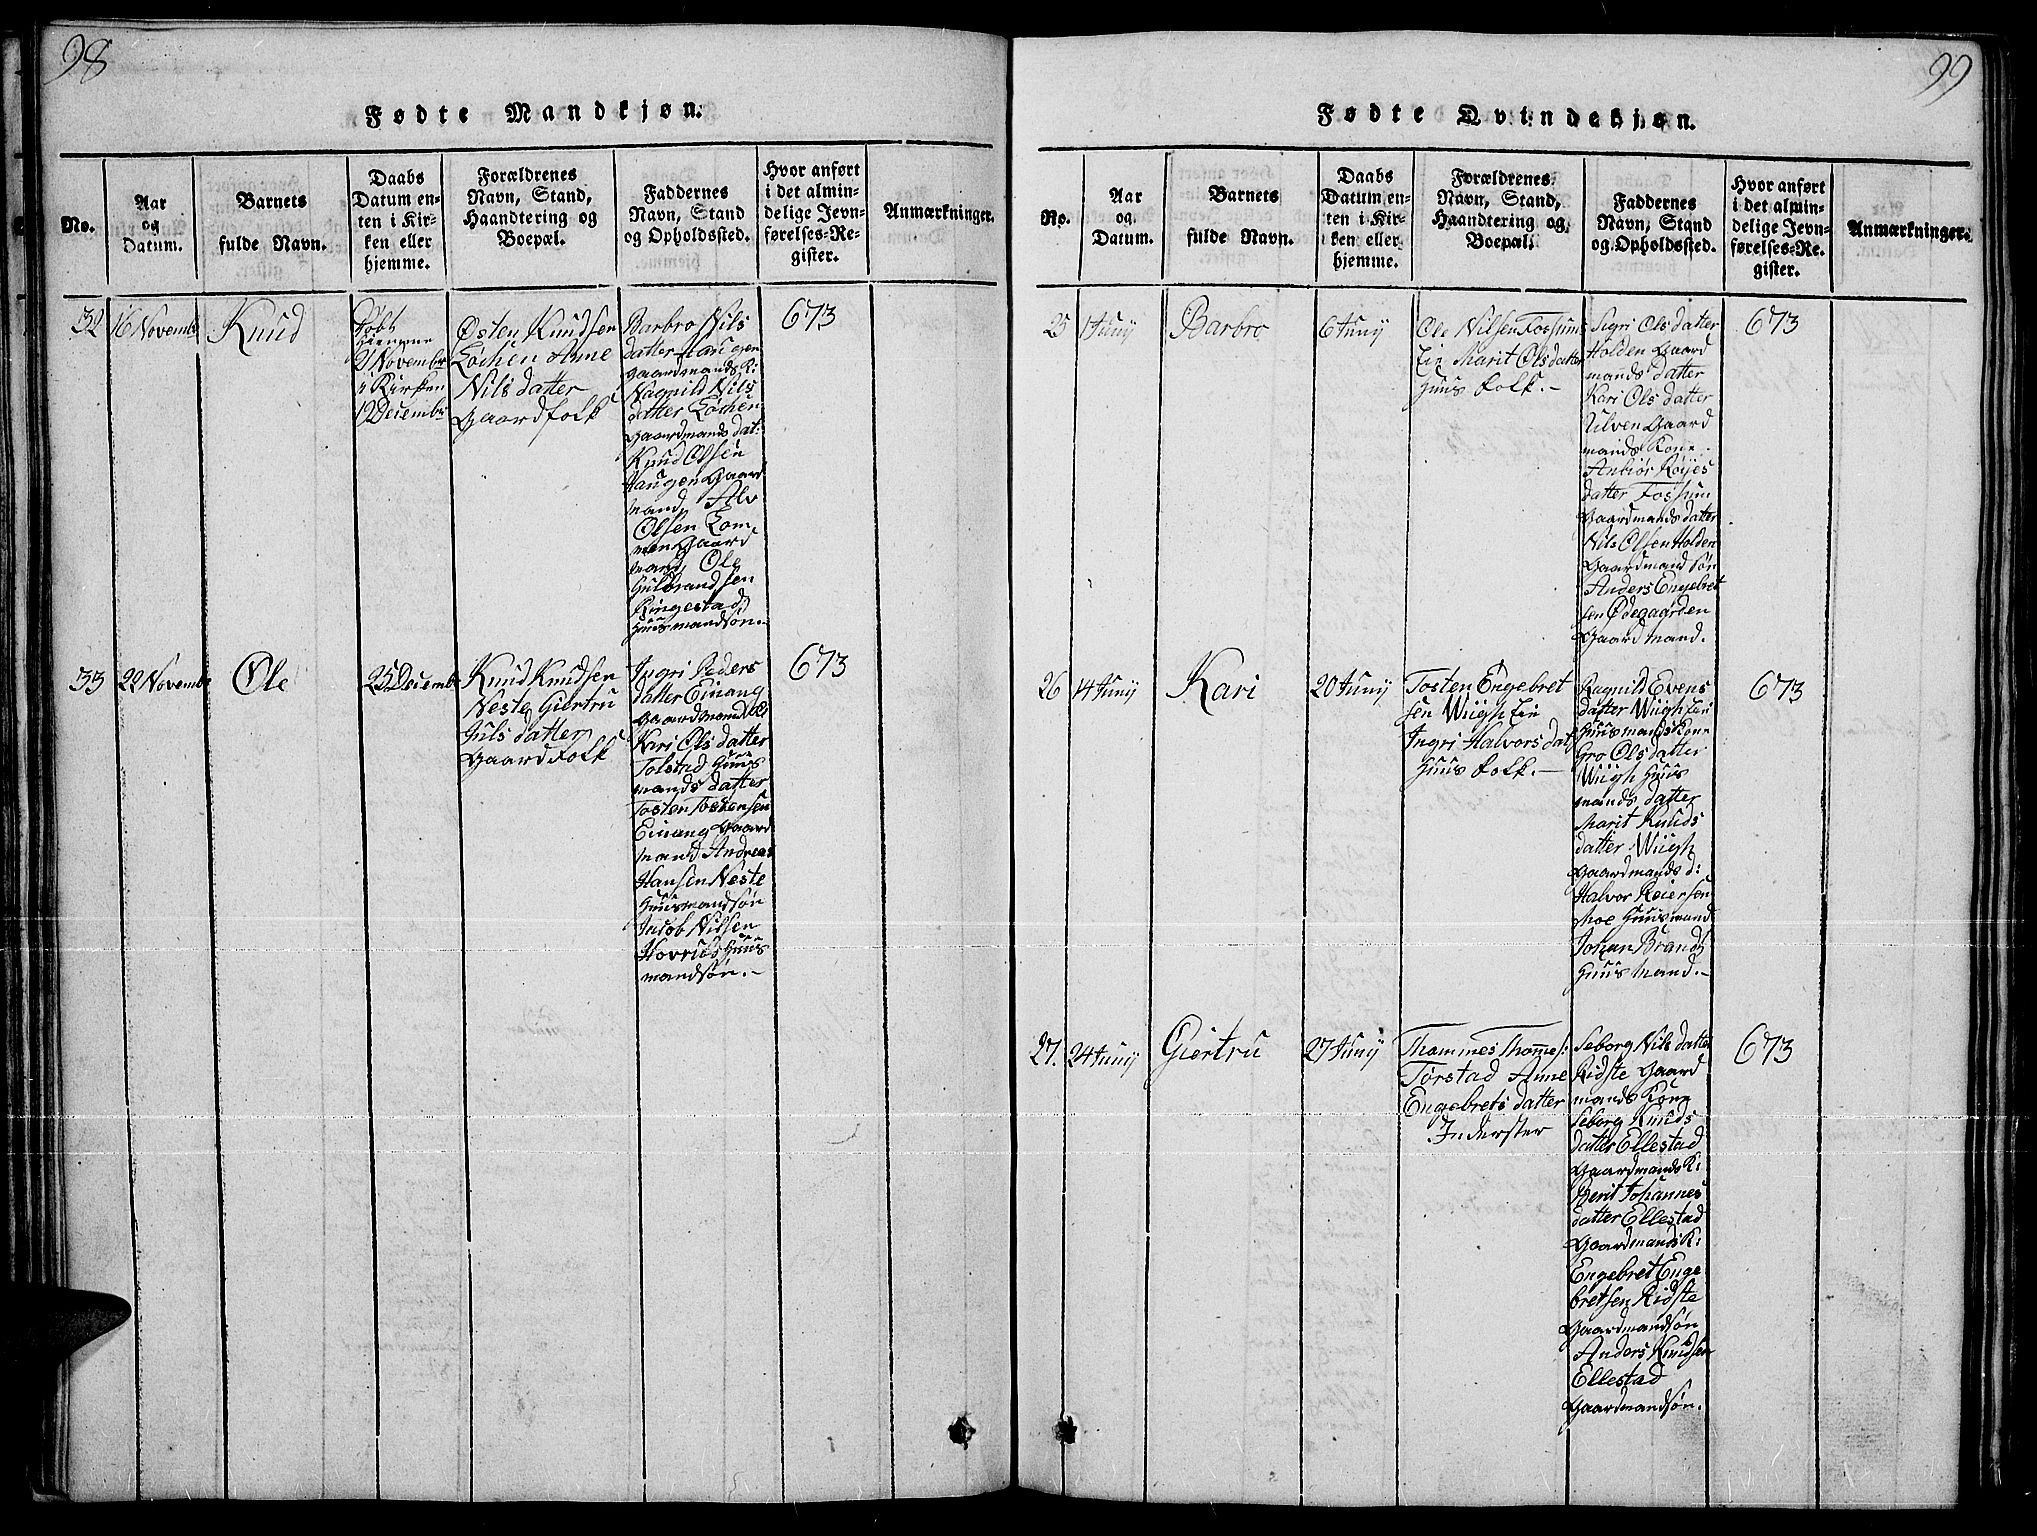 98
Fødte Mandkjøn.
No.
Aar
og
Datum.
Barnets
fulde Navn.
Daabs
Datum en-
ten i Kir-
ken eller
hjemme.
Forældrenes
Navn, Stand,
Haandtering og
Boepæl.
Faddernes
Navn, Stand
og Opholdssted.
Hvor anført
i det almin-
delige Jevn-
førelses-Re-
gister.
Anmærkninger.
32
16 Novembr
Knud
Døbt
hiemme
21 November
i Kirken
12 Decembr
Østen Knudsen
Løchen Anne
Nils datter
Gaardfolk
Barbro Nils
datter Haugen
Gaardmands K:
Ragnild Nils
datter Løchen
Gaardmands dat:
Knud Olsen
Haugen Gaard
mand, Alv
Olsen Lom,
men Gaard
mand, Ole
Gulbrandsen
Ringestad
Huusmandsøn.-
673
33
22 Novembr
Ole
25 Decembr
Knud Knudsen
Neste Giertru
Guls datter
Gaardfolk
Ingri Peders
datter Einang
Gaardmand
Kari Ols datter
Tolstad Huus
mands datter
Tosten Tostensen
Einang Gaard
mand Andreas
Hansen Neste
Huusmandsøn
Jacob Nilsen
Hovrud Huus
mandsøn.-
673
99
Fødte Qvindekjøn.
No.
Aar
og
Datum.
Barnets
fulde Navn.
Daabs
Datum en-
ten i Kir-
ken eller
hjemme.
Forældrenes
Navn, Stand,
Haandtering og
Boepæl.
Faddernes
Navn, Stand
og Opholdssted.
Hvor anført
i det almin-
delige Jevn-
førelses-Re-
gister.
Anmærkninger.
25
1 Juny
Barbro
6 Juny
Ole Nilsen Fossums
Eie Marit Ols datter
Huus folk.-
Sigri Ols datter
Holden Gaard
mands datter
Kari Ols datter
Ulven Gaard
mands Kone
Anbiør Royes
datter Fossum
Gaardmands datter
Nils Olsen Holden
Gaardmand søn
Anders Engebret
sen Ødegaarden
Gaard mand.
673
26
14 Juny
Kari
20 Juny
Tosten Engebret
sen Wiigh Eie
Ingri Halvors dat
Huus folk.-
Ragnild Evens
datter Wiigh Eie
Huusmands Kone
Gro Ols datter
Wiigh Huus
mands datter
Marit Knuds
datter Wiigh
Gaardmands d:
Halvor Reiersen
Moe Huusmand
Johan Brands
Huus mand.-
673
27.
24 Juny
Giertru
27 Juny
Thommes Thomes:
Tørstad Anne
Engebrets datter
Inderster
Seborg Nils datter
Ridste Gaard
mands Kone
Seborg Knuds
datter Ellestad
Gaardmands K:
Berit Johannes
datter Ellestad
Gaardmands K:
Engebret Enge
bretsen Ridste
Gaardmandsøn
Anders Knudsen
Ellestad
Gaardmandsøn.
673